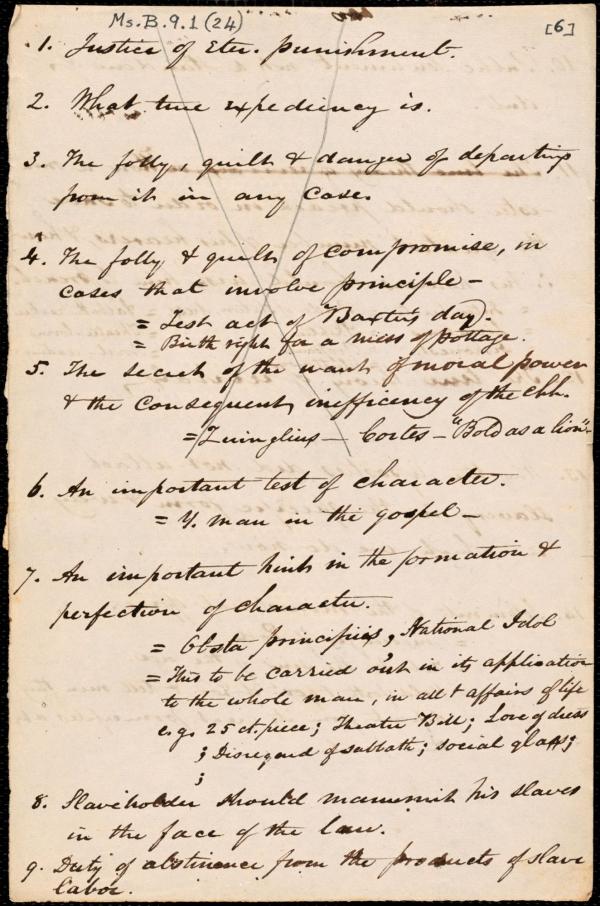 Ms. B. 9. 1 (24)
[6]
1. Justice of Eter. punishment.
2. What true expediency is.
3. The folly, guilt & danger of departing
from it in any case.
4. The folly & guilt of compromise, in
cases that involve principle -
= Test act of Baxter's day.
= Birth right for a mess of pottage.
5. The secret of the want of moral power
& the consequent inefficency of the chh.
= Zuinglius - Cortes - "Bold as a lion" -
6. An important test of character.
= Y. man in the gospel -
7. An important hint in the formation &
perfection of character.
= Obsta principiis, National Idol
= This to be carried out in its application
to the whole man, in all t affairs of life
e.g. 25 ct. piece; Theatre Bill; Love of dress
; Disregard of sabbath; social glass;
;
8. Slaveholder should manumit his slaves
in the face of the law.
9. Duty of abstinence from the products of slave
labor.